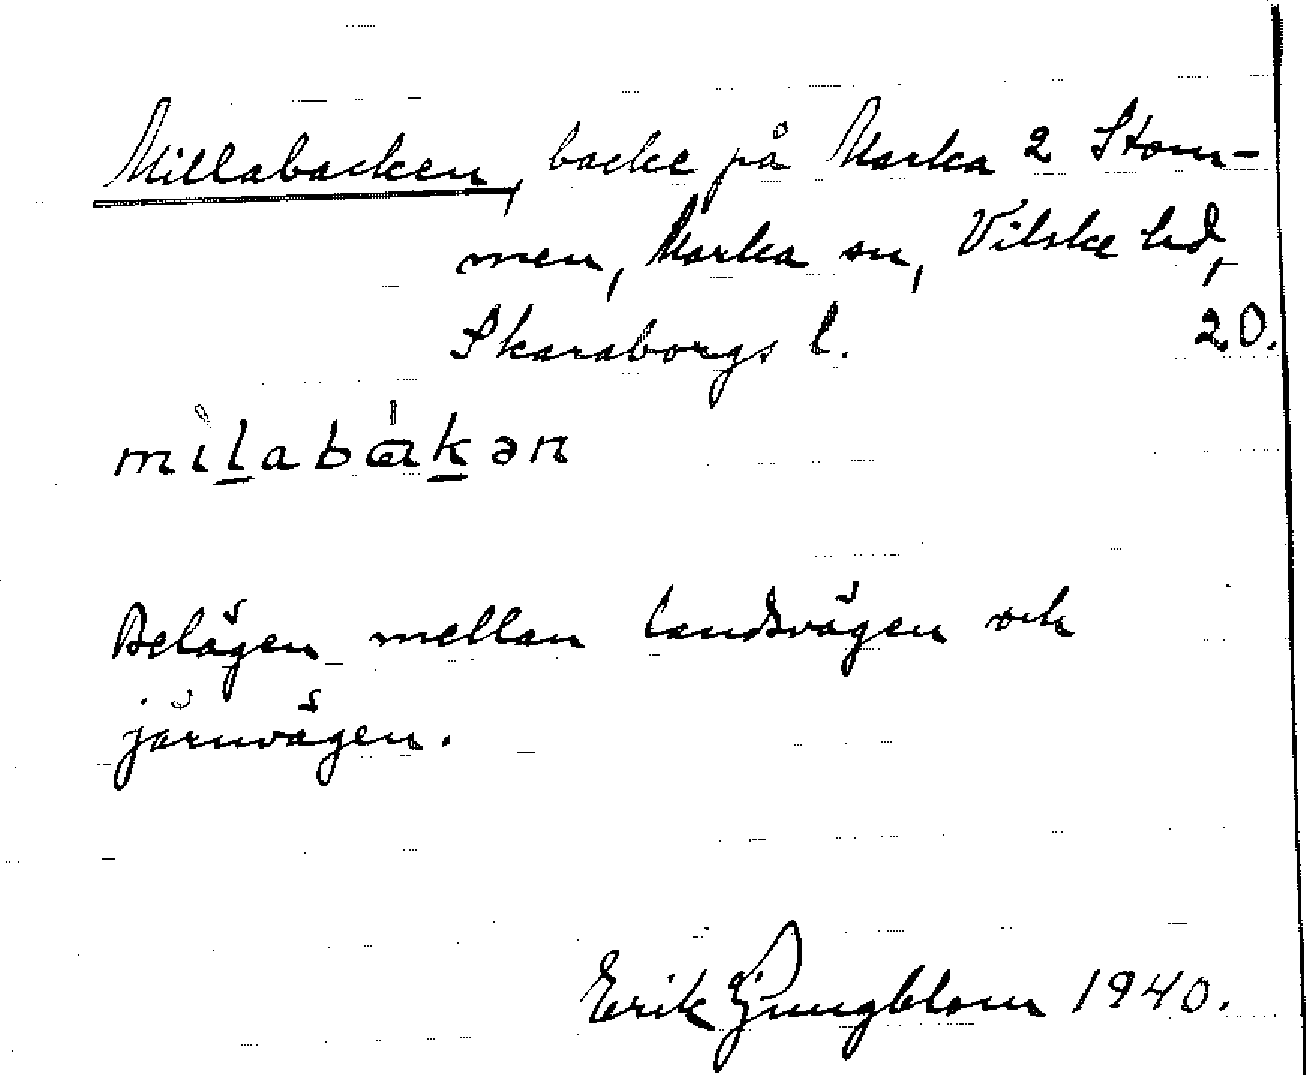 Millabacken, backe på Marka 2 Stom-
men, Marka sn, Vilske hd,
Skaraborgs l. 20.
mìḻabɑ́ḵən
Belägen mellan landsvägen och
järnvägen.
Erik Ljungblom 1940.